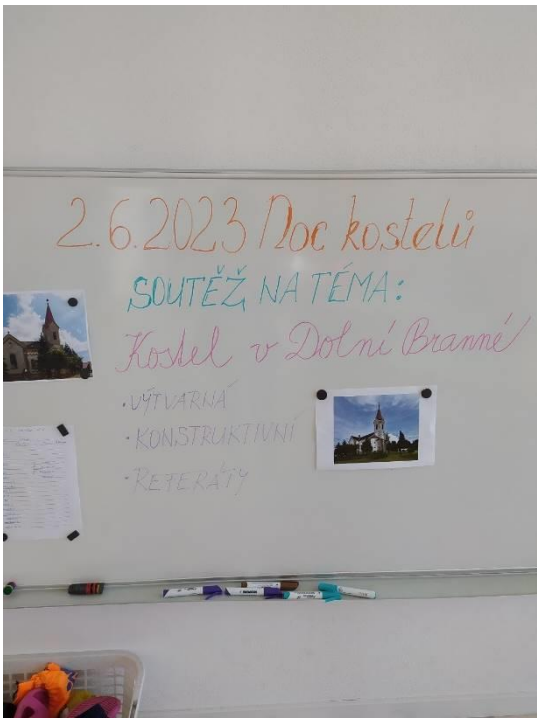 2.6.2023 Noc kostelů
SOUTĚŽ NA TÉMA:
Kostel v Dolní Branné
• VÝTVARNÁ
• KONSTRUKTIVNÍ
• REFERÁTY